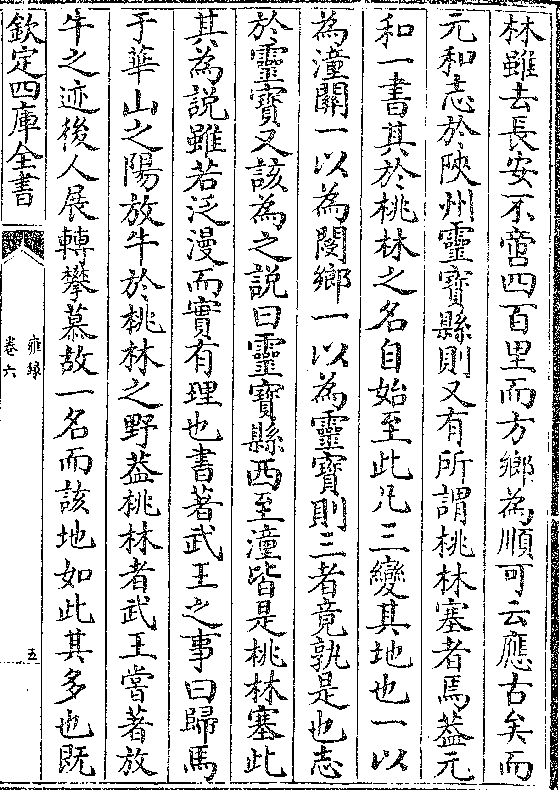 林雖去長安不啻四百里而方鄉為順可云應古矣而
元和志於陜州靈寶縣則又有所謂桃林塞者焉葢元
和一書其於桃林之名自始至此凡三變其地也一以
為潼關一以為閿鄉一以為靈寶則三者竟孰是也志
於靈寶又該為之說曰靈寶縣西至潼皆是桃林塞此
其為說雖若泛漫而實有理也書著武王之事曰歸馬
于華山之陽放牛於桃林之野葢桃林者武王嘗著放
牛之迹後人展轉攀慕故一名而該地如此其多也既
欽定四庫全書
雍録
卷六
五